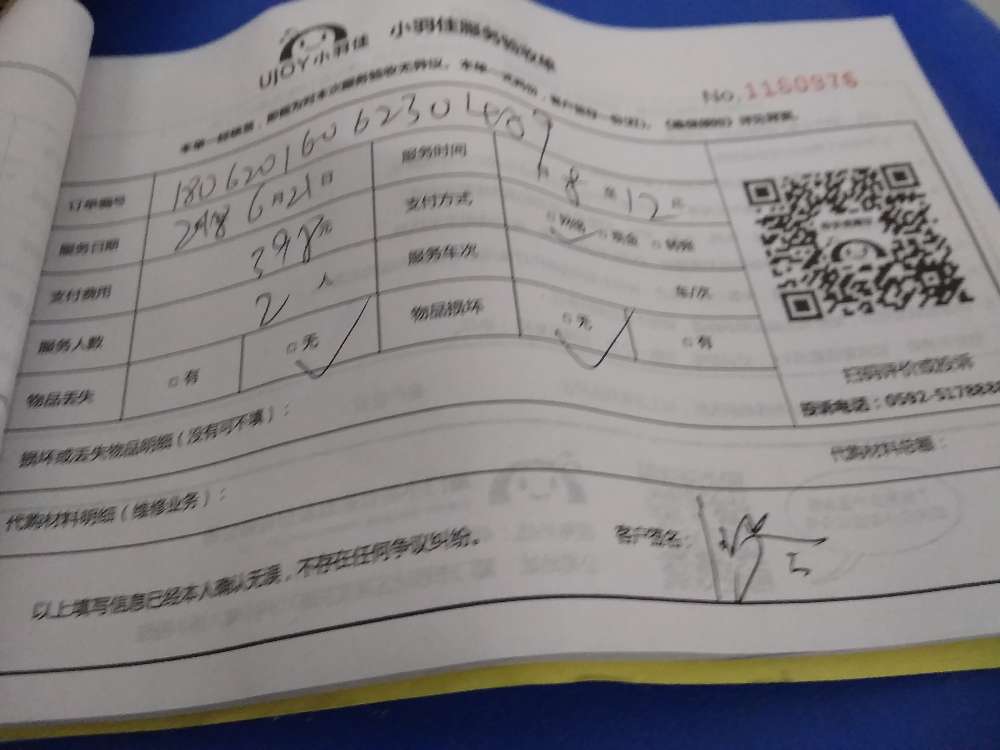 UJOY小羽佳 小羽佳服务验收单
No.1160976
订单编号 180620160623014007 服务时间 8 至 12
服务日期 2018 6月21日 支付方式 现金 转账
支付费用 398元 服务车次 车/次
服务人数 2人 物品损坏 无 有
物品丢失 有 无
扫码评价或投诉
投诉电话：0592-5178888
损坏或丢失物品明细（没有可不填）：
代购材料明细（维修业务）： 代购材料总额：
以上填写信息已经本人确认无误，不存在任何争议纠纷。 客户签名：